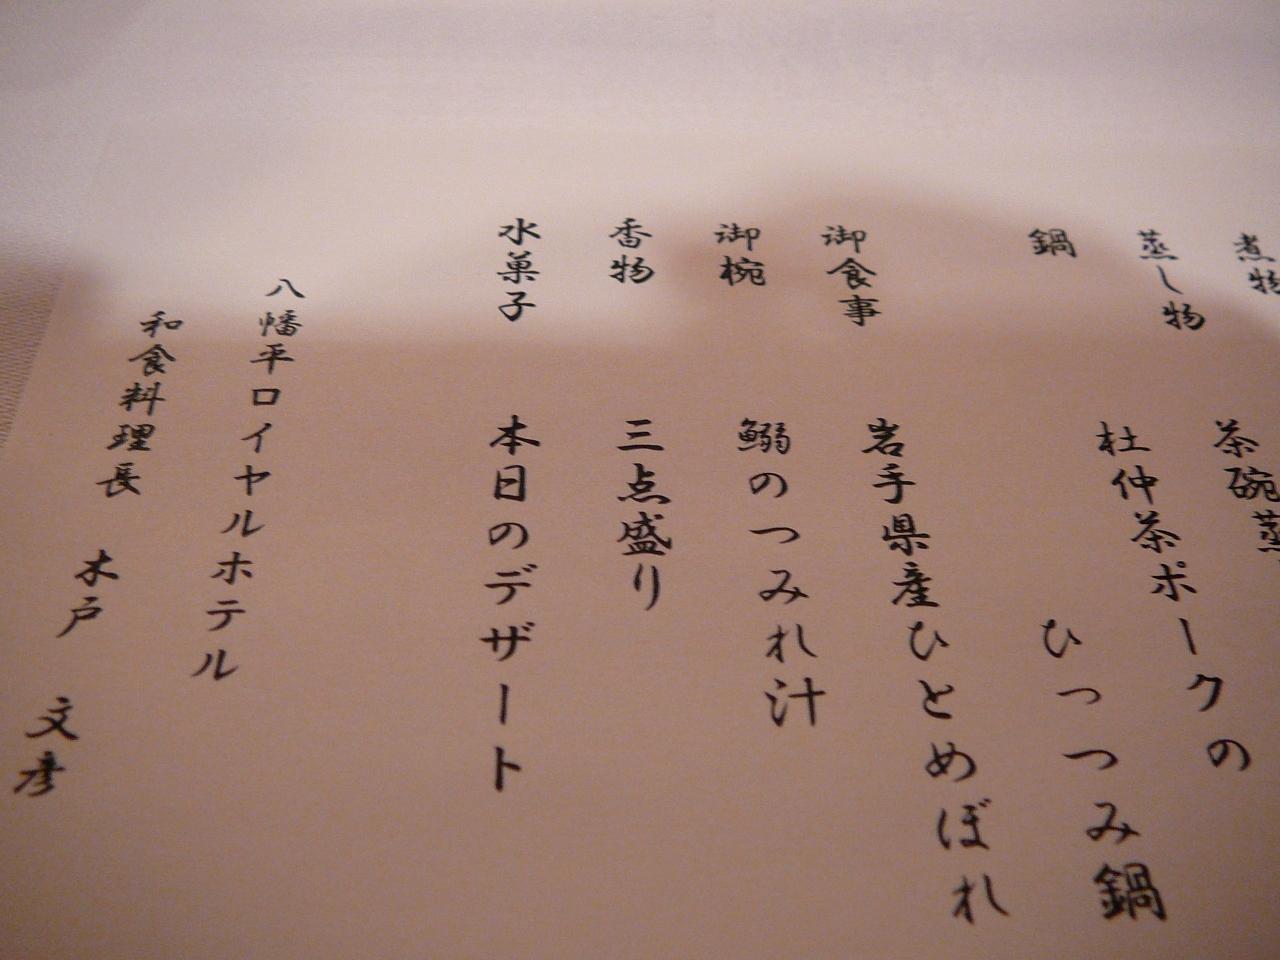 煮物
蒸し物 茶碗蒸
鍋 杜仲茶ポークの
ひっつみ鍋
御食事 岩手県産ひとめぼれ
御椀 鰯のつみれ汁
香物 三点盛り
水菓子 本日のデザート
八幡平ロイヤルホテル
和食料理長 木戸 文彦